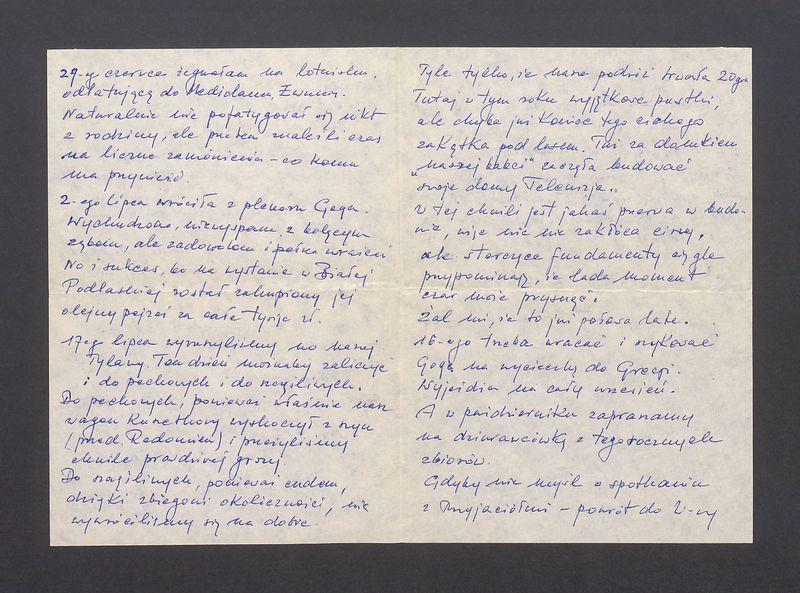 29-go czerwca żegnałam na lotnisku,
odlatującą do Mediolanu, Ewunię.
Naturalnie nie pofatygował się nikt
z rodziny, ale przedtem znaleźli czas
na liczne zamówienia – co komu
ma przywieźć.
2-ego lipca wróciła z pleneru Goga.
Wychudzona, niewyspana, z bolącym
zębem, ale zadowolona i pełna wrażeń
No i sukces, bo na wystawie w Białej
Podlaskiej został zakupiony jej
olejny pejzaż za całe tysiące zł.
17-go lipca wyruszyliśmy do naszej
Tylawy. Ten dzień możnaby zaliczyć
i do pechowych i do szczęśliwych.
Do pechowych, ponieważ właśnie nasz
wagon kuszetkowy wyskoczył z szyn
(przed Radomiem) i przeżyliśmy
chwile prawdziwej grozy.
Do szczęśliwych, ponieważ cudem,
dzięki zbiegowi okoliczności, nie
wywróciliśmy się na dobre.
Tyle tylko, że nasza podróż trwała 20 godz
Tutaj w tym roku wyjątkowe pustki,
ale chyba już koniec tego cichego
zakątka pod lasem. Tuż za domkiem
„naszej babci” zaczęła budować
swoje domy Telewizja..
W tej chwili jest jakaś przerwa w budo-
wie, więc nic nie zakłóca ciszy,
ale sterczące fundamenty ciągle
przypominają, że lada moment
czar może prysnąć.
Żal mi, że to już połowa lata.
16-ego trzeba wracać i szykować
Gogę na wycieczkę do Grecji.
Wyjeżdża na cały wrzesień.
A w październiku zapraszamy
na dziurawcówkę z tegorocznych
zbiorów.
Gdyby nie myśl o spotkaniu
z Przyjaciółmi – powrót do W-wy